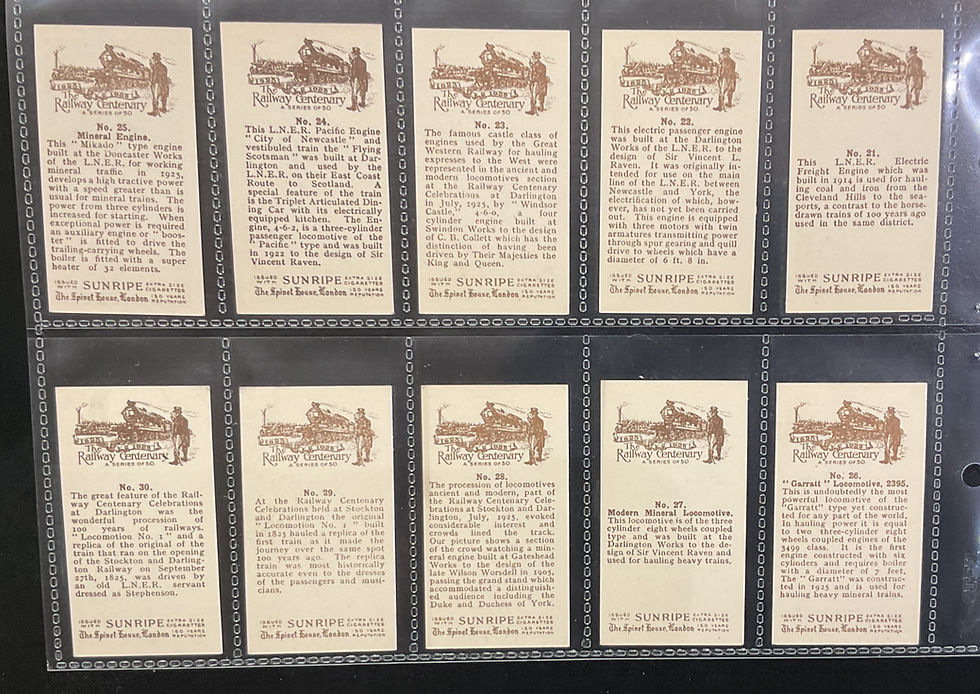 1825 1925
The
Railway Centenary
A SERIES OF 50
No. 25.
Mineral Engine.
This "Mikado" type engine
built at the Doncaster Works
of the L.N.E.R. for working
mineral traffic in 1925,
develops a high tractive power
with a speed greater than is
usual for mineral trains. The
power from three cylinders is
increased for starting. When
exceptional power is required
an auxiliary engine or "boos-
ter" is fitted to drive the
trailing-carrying wheels. The
boiler is fitted with a super
heater of 32 elements.
ISSUED WITH SUNRIPE EXTRA SIZE CIGARETTES
The Spinet House, London 150 YEARS REPUTATION
1825 1925
The
Railway Centenary
A SERIES OF 50
No. 24.
This L.N.E.R. Pacific Engine
"City of Newcastle" and
vestibuled train the "Flying
Scotsman" was built at Dar-
lington and used by the
L.N.E.R. on their East Coast
Route to Scotland. A
special feature of the train
is the Triplet Articulated Din-
ing Car with its electrically
equipped kitchen. The En-
gine, 4-6-2, is a three-cylinder
passenger locomotive of the
"Pacific" type and was built
in 1922 to the design of Sir
Vincent Raven.
ISSUED WITH SUNRIPE EXTRA SIZE CIGARETTES
The Spinet House, London 150 YEARS REPUTATION
1825 1925
The
Railway Centenary
A SERIES OF 50
No. 23.
The famous castle class of
engines used by the Great
Western Railway for hauling
expresses to the West were
represented in the ancient and
modern locomotives section
at the Railway Centenary
Celebrations at Darlington
in July, 1925, by "Windsor
Castle," 4-6-0, a four
cylinder engine built at
Swindon Works to the design
of C. B. Collett which has the
distinction of having been
driven by Their Majesties the
King and Queen.
ISSUED WITH SUNRIPE EXTRA SIZE CIGARETTES
The Spinet House, London 150 YEARS REPUTATION
1825 1925
The
Railway Centenary
A SERIES OF 50
No. 22.
This electric passenger engine
was built at the Darlington
Works of the L.N.E.R. to the
design of Sir Vincent L.
Raven. It was originally in-
tended for use on the main
line of the L.N.E.R. between
Newcastle and York, the
electrification of which, how-
ever, has not yet been carried
out. This engine is equipped
with three motors with twin
armatures transmitting power
through spur gearing and quill
drive to wheels which have a
diameter of 6 ft. 8 in.
ISSUED WITH SUNRIPE EXTRA SIZE CIGARETTES
The Spinet House, London 150 YEARS REPUTATION
1825 1925
The
Railway Centenary
A SERIES OF 50
No. 21.
This L.N.E.R. Electric
Freight Engine which was
built in 1914 is used for haul-
ing coal and iron from the
Cleveland Hills to the sea-
ports, a contrast to the horse-
drawn trains of 100 years ago
used in the same district.
ISSUED WITH SUNRIPE EXTRA SIZE CIGARETTES
The Spinet House, London 150 YEARS REPUTATION
1825 1925
The
Railway Centenary
A SERIES OF 50
No. 30.
The great feature of the Rail-
way Centenary Celebrations
at Darlington was the
wonderful procession of
100 years of railways.
"Locomotion No. 1" and a
replica of the original of the
train that ran on the opening
of the Stockton and Darling-
ton Railway on September
27th, 1825, was driven by
an old L.N.E.R. servant
dressed as Stephenson.
ISSUED WITH SUNRIPE EXTRA SIZE CIGARETTES
The Spinet House, London 150 YEARS REPUTATION
1825 1925
The
Railway Centenary
A SERIES OF 50
No. 29.
At the Railway Centenary
Celebrations held at Stockton
and Darlington the original
"Locomotion No. 1" built
in 1825 hauled a replica of the
first train as it made the
journey over the same spot
100 years ago. The replica
train was most historically
accurate even to the dresses
of the passengers and musi-
cians.
ISSUED WITH SUNRIPE EXTRA SIZE CIGARETTES
The Spinet House, London 150 YEARS REPUTATION
1825 1925
The
Railway Centenary
A SERIES OF 50
No. 28.
The procession of locomotives
ancient and modern, part of
the Railway Centenary Cele-
brations at Stockton and Dar-
lington, July, 1925, evoked
considerable interest and
crowds lined the track.
Our picture shows a section
of the crowd watching a min-
eral engine built at Gateshead
Works to the design of the
late Wilson Worsdell in 1905,
passing the grand stand which
accommodated a distinguish-
ed audience including the
Duke and Duchess of York.
ISSUED WITH SUNRIPE EXTRA SIZE CIGARETTES
The Spinet House, London 150 YEARS REPUTATION
1825 1925
The
Railway Centenary
A SERIES OF 50
No. 27.
Modern Mineral Locomotive.
This locomotive is of the three
cylinder eight wheels coupled
type and was built at the
Darlington Works to the de-
sign of Sir Vincent Raven and
used for hauling heavy trains.
ISSUED WITH SUNRIPE EXTRA SIZE CIGARETTES
The Spinet House, London 150 YEARS REPUTATION
1825 1925
The
Railway Centenary
A SERIES OF 50
No. 26.
"Garratt" Locomotive, 2395.
This is undoubtedly the most
powerful locomotive of the
"Garratt" type yet construc-
ted for any part of the world.
In hauling power it is equal
to two three-cylinder eight
wheels coupled engines of the
3499 class. It is the first
engine constructed with six
cylinders and requires boiler
with a diameter of 7 feet.
The "Garratt" was construc-
ted in 1925 and is used for
hauling heavy mineral trains.
ISSUED WITH SUNRIPE EXTRA SIZE CIGARETTES
The Spinet House, London 150 YEARS REPUTATION